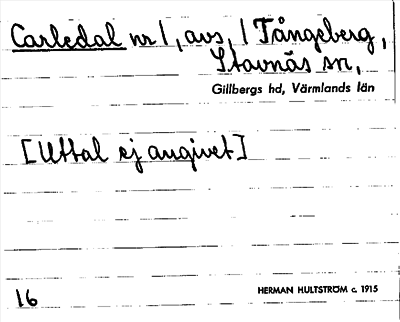 Carledal nr 1, avs. 1 Tångeberg,
Stavnäs sn,
Gillbergs hd, Värmlands län
[Uttal ej angivet]
16
HERMAN HULTSTRÖM c. 1915